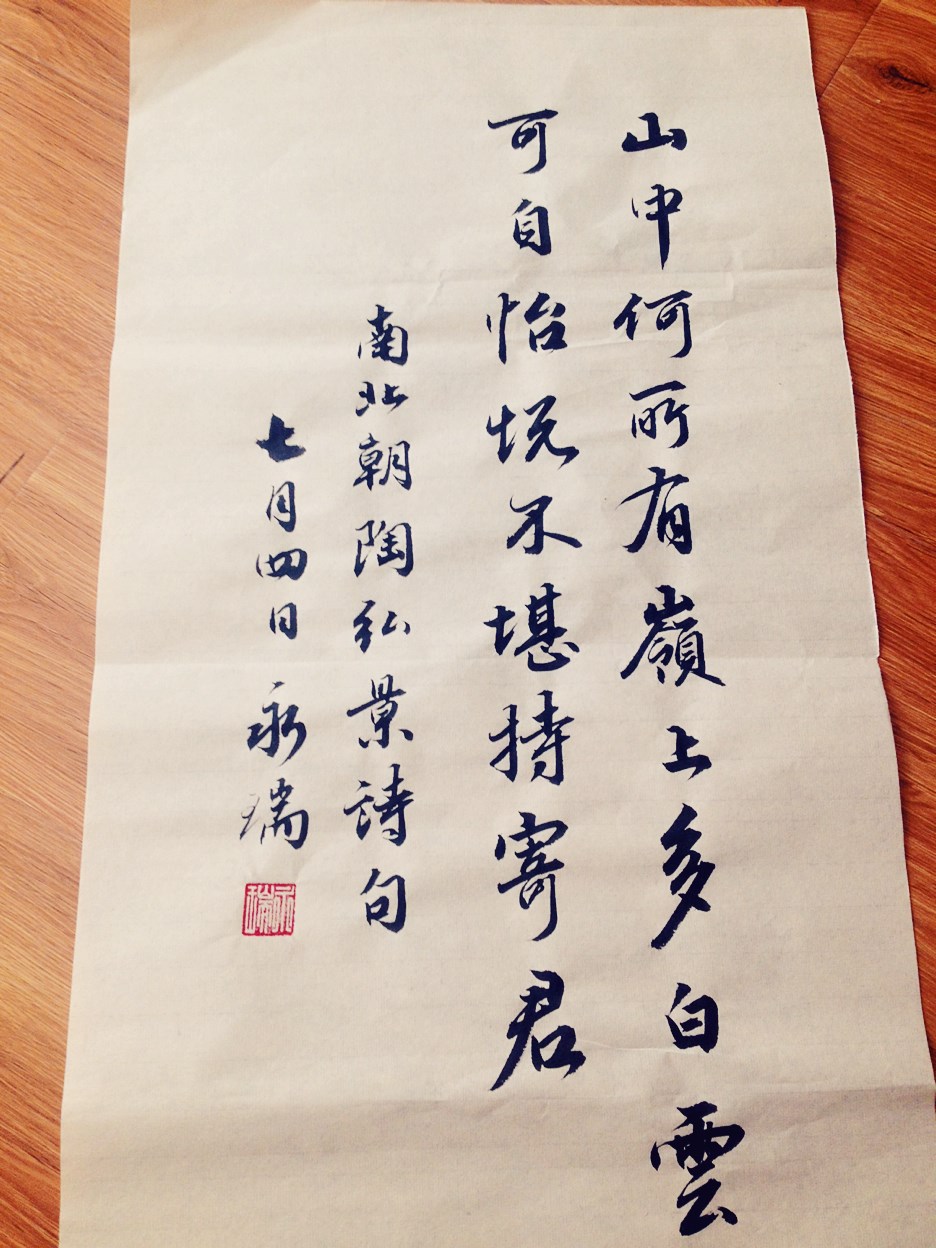 山中何所有嶺上多白雲
可自怡悦不堪持寄君
南北朝陶弘景詩句
七月四日永瑞
永瑞